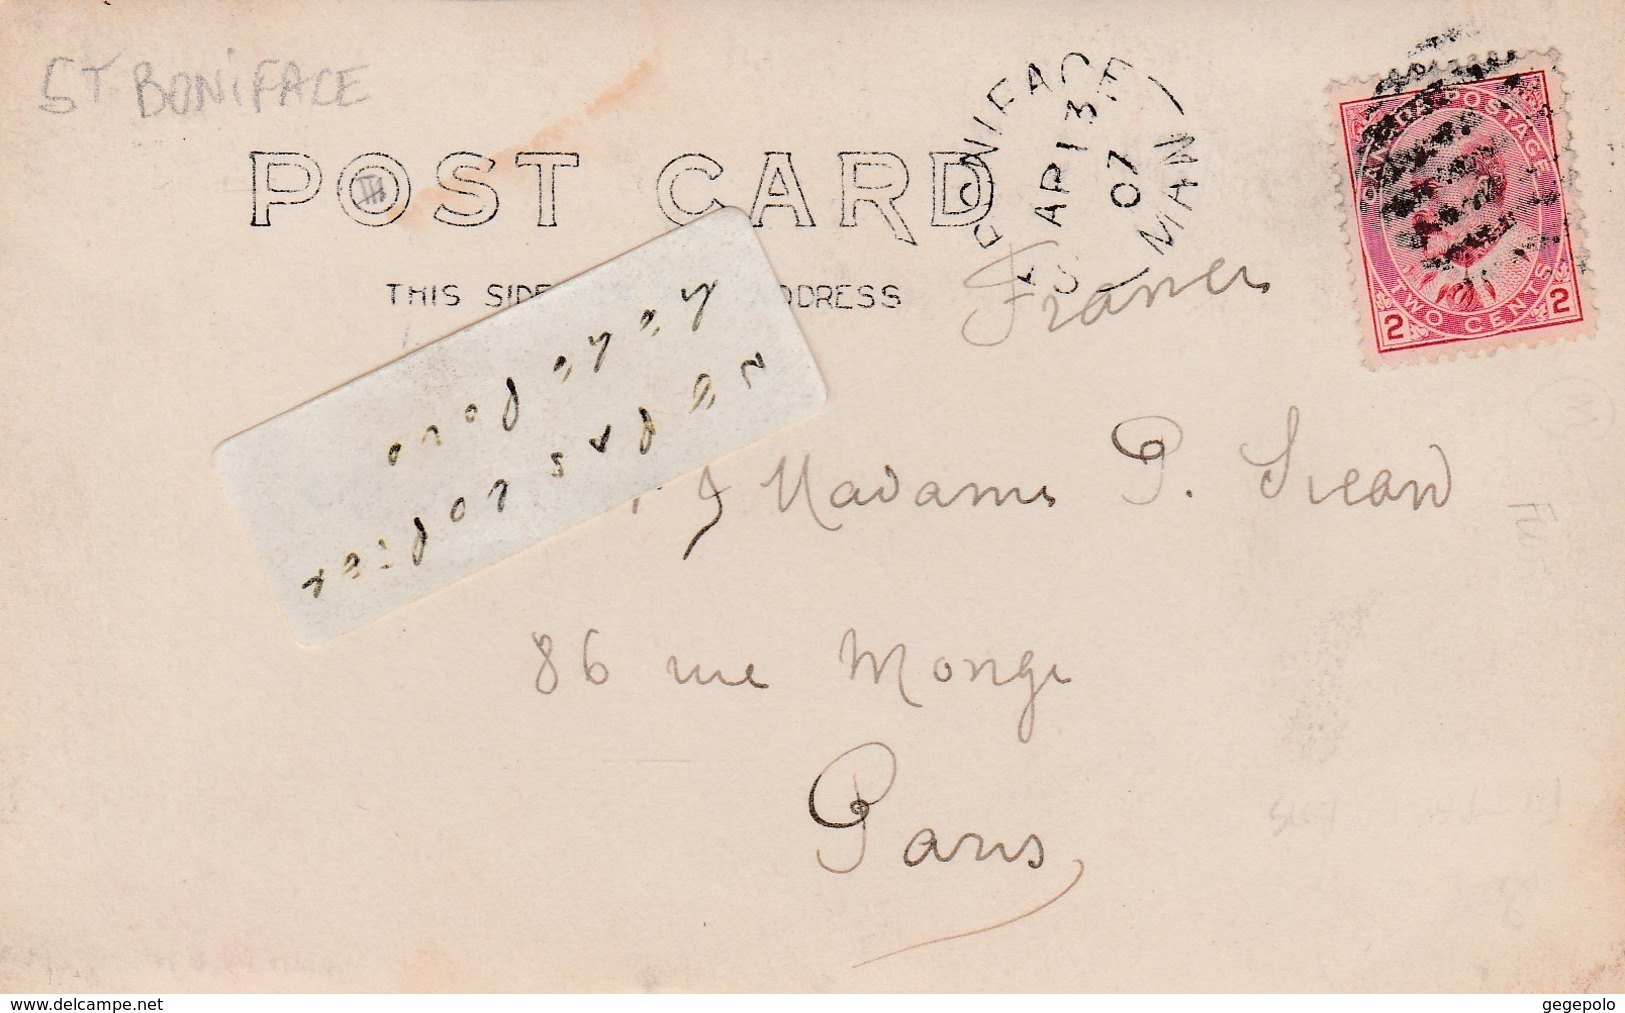 ST BONIFACE
POST CARD
THIS SIDE DDRESS
BONIFACE
AP 13
07
MAN
CANADA POSTAGE
TWO CENTS
2 2
France
& Madame P. Sicard
86 rue Monge
Paris
www.delcampe.net
gegepolo